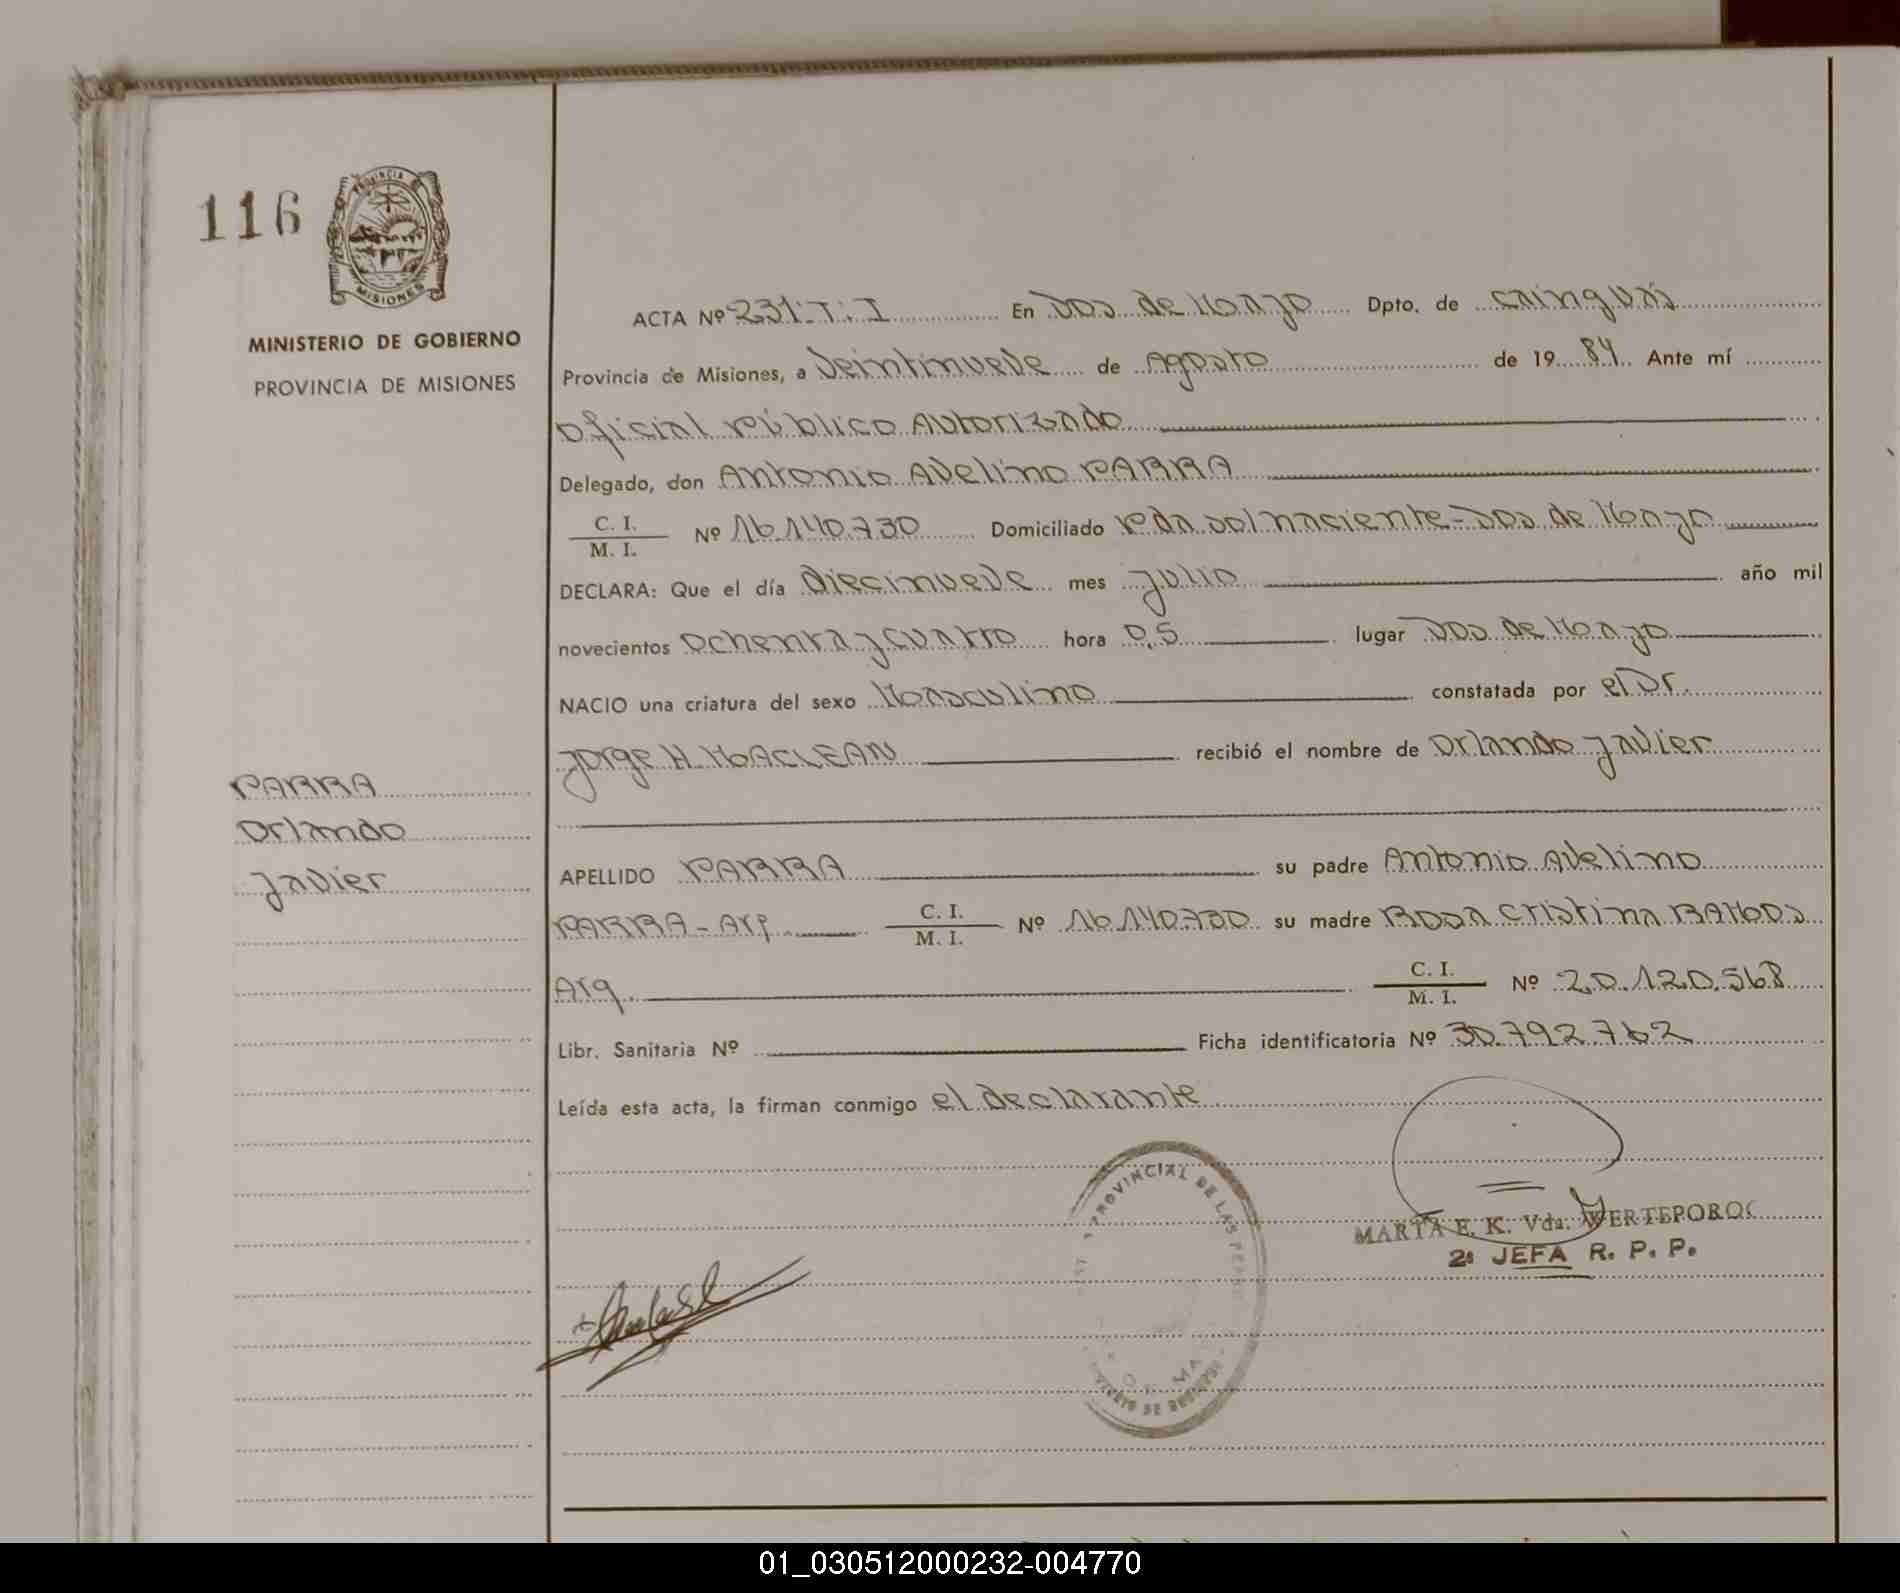 116
PROVINCIA DE
MISIONES
MINISTERIO DE GOBIERNO
PROVINCIA DE MISIONES
ACTA Nº 231-T.I En Dos de Mayo Dpto. de Cainguás
Provincia de Misiones, a Veintinueve de Agosto de 1984. Ante mí
Oficial Público Autorizado
Delegado, don Antonio Avelino PARRA
C. I.
M. I. Nº 16.140.730 Domiciliado Pda Sol naciente-Dos de Mayo
DECLARA: Que el día diecinueve mes julio año mil
novecientos Ochenta y cuatro hora 0,5 lugar Dos de Mayo
NACIO una criatura del sexo Masculino constatada por el Dr.
Jorge H. MACLEAN recibió el nombre de Orlando Javier
PARRA
Orlando
Javier
APELLIDO PARRA su padre Antonio Avelino
PARRA - Arg. C. I.
M. I. Nº 16.140.730 su madre Rosa Cristina RAMOS
Arg. C. I.
M. I. Nº 20.120.568
Libr. Sanitaria Nº Ficha identificatoria Nº 30.792.762
Leída esta acta, la firman conmigo el declarante
PROVINCIAL DE LAS PERS
MARTA E. K. Vda. WERTEPOROC
2ª JEFA R. P. P.
01_030512000232-004770